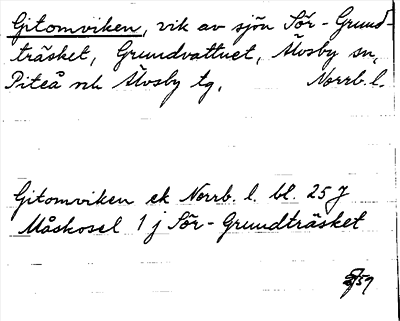 Gitomviken, vik av sjön Sör-Grund-
träsket, Grundvattnet, Älvsby sn,
Piteå nh Älvsby tg. Norrb. l.
Gitomviken ek Norrb. l. bl. 25 J
Måskosel 1 j Sör-Grundträsket
59